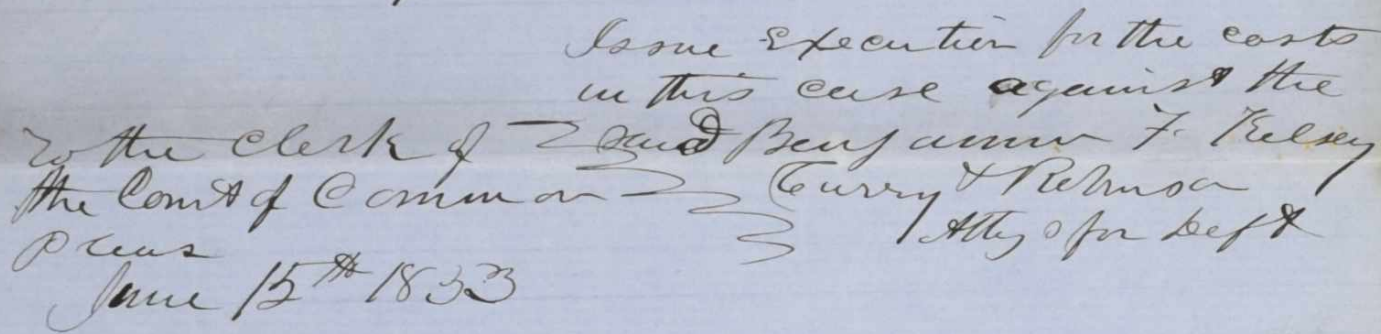 Issue Execution for the costs
in this case against the
said Benjamin F. Kelsey
Curry & Robinson
Attys for Deft
To the Clerk of
the Court of Common
Pleas
June 15th 1853